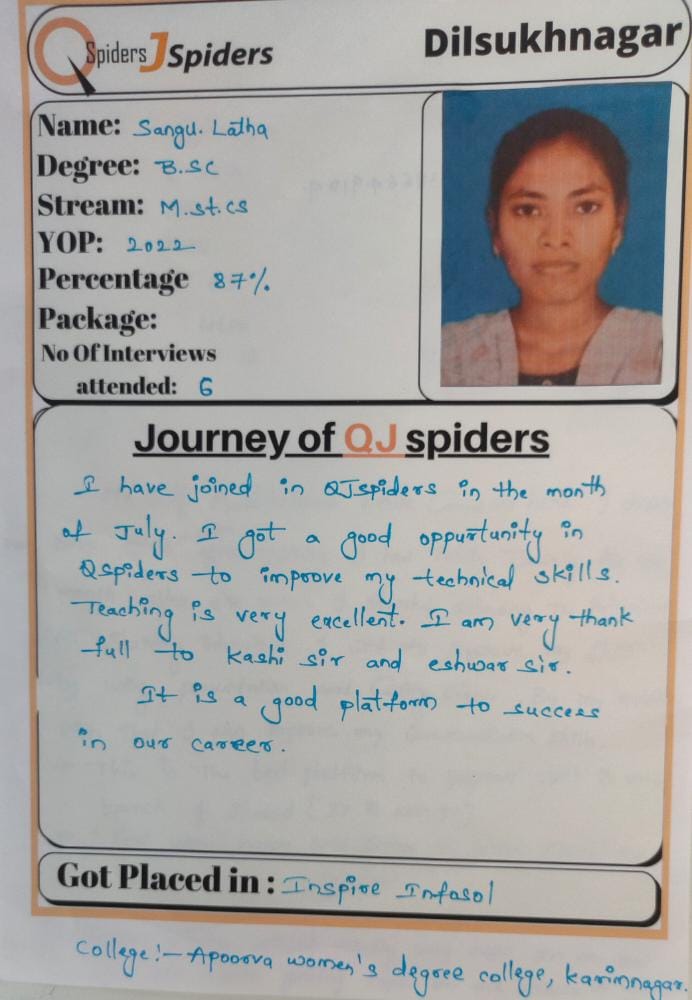 QSpiders JSpiders
Dilsukhnagar
Name: Sangu. Latha
Degree: B.SC
Stream: M.St.CS
YOP: 2022
Percentage 87%
Package:
No Of Interviews
attended: 6
Journey of QJ spiders
I have joined in QJspiders in the month
of July. I got a good oppurtunity in
Qspiders to improove my technical skills.
Teaching is very excellent. I am very thank
full to Kashi sir and eshwar sir.
It is a good platform to success
in our career.
Got Placed in : Inspire Infosol
College:- Apoorva women's degree college, Karimnagar.